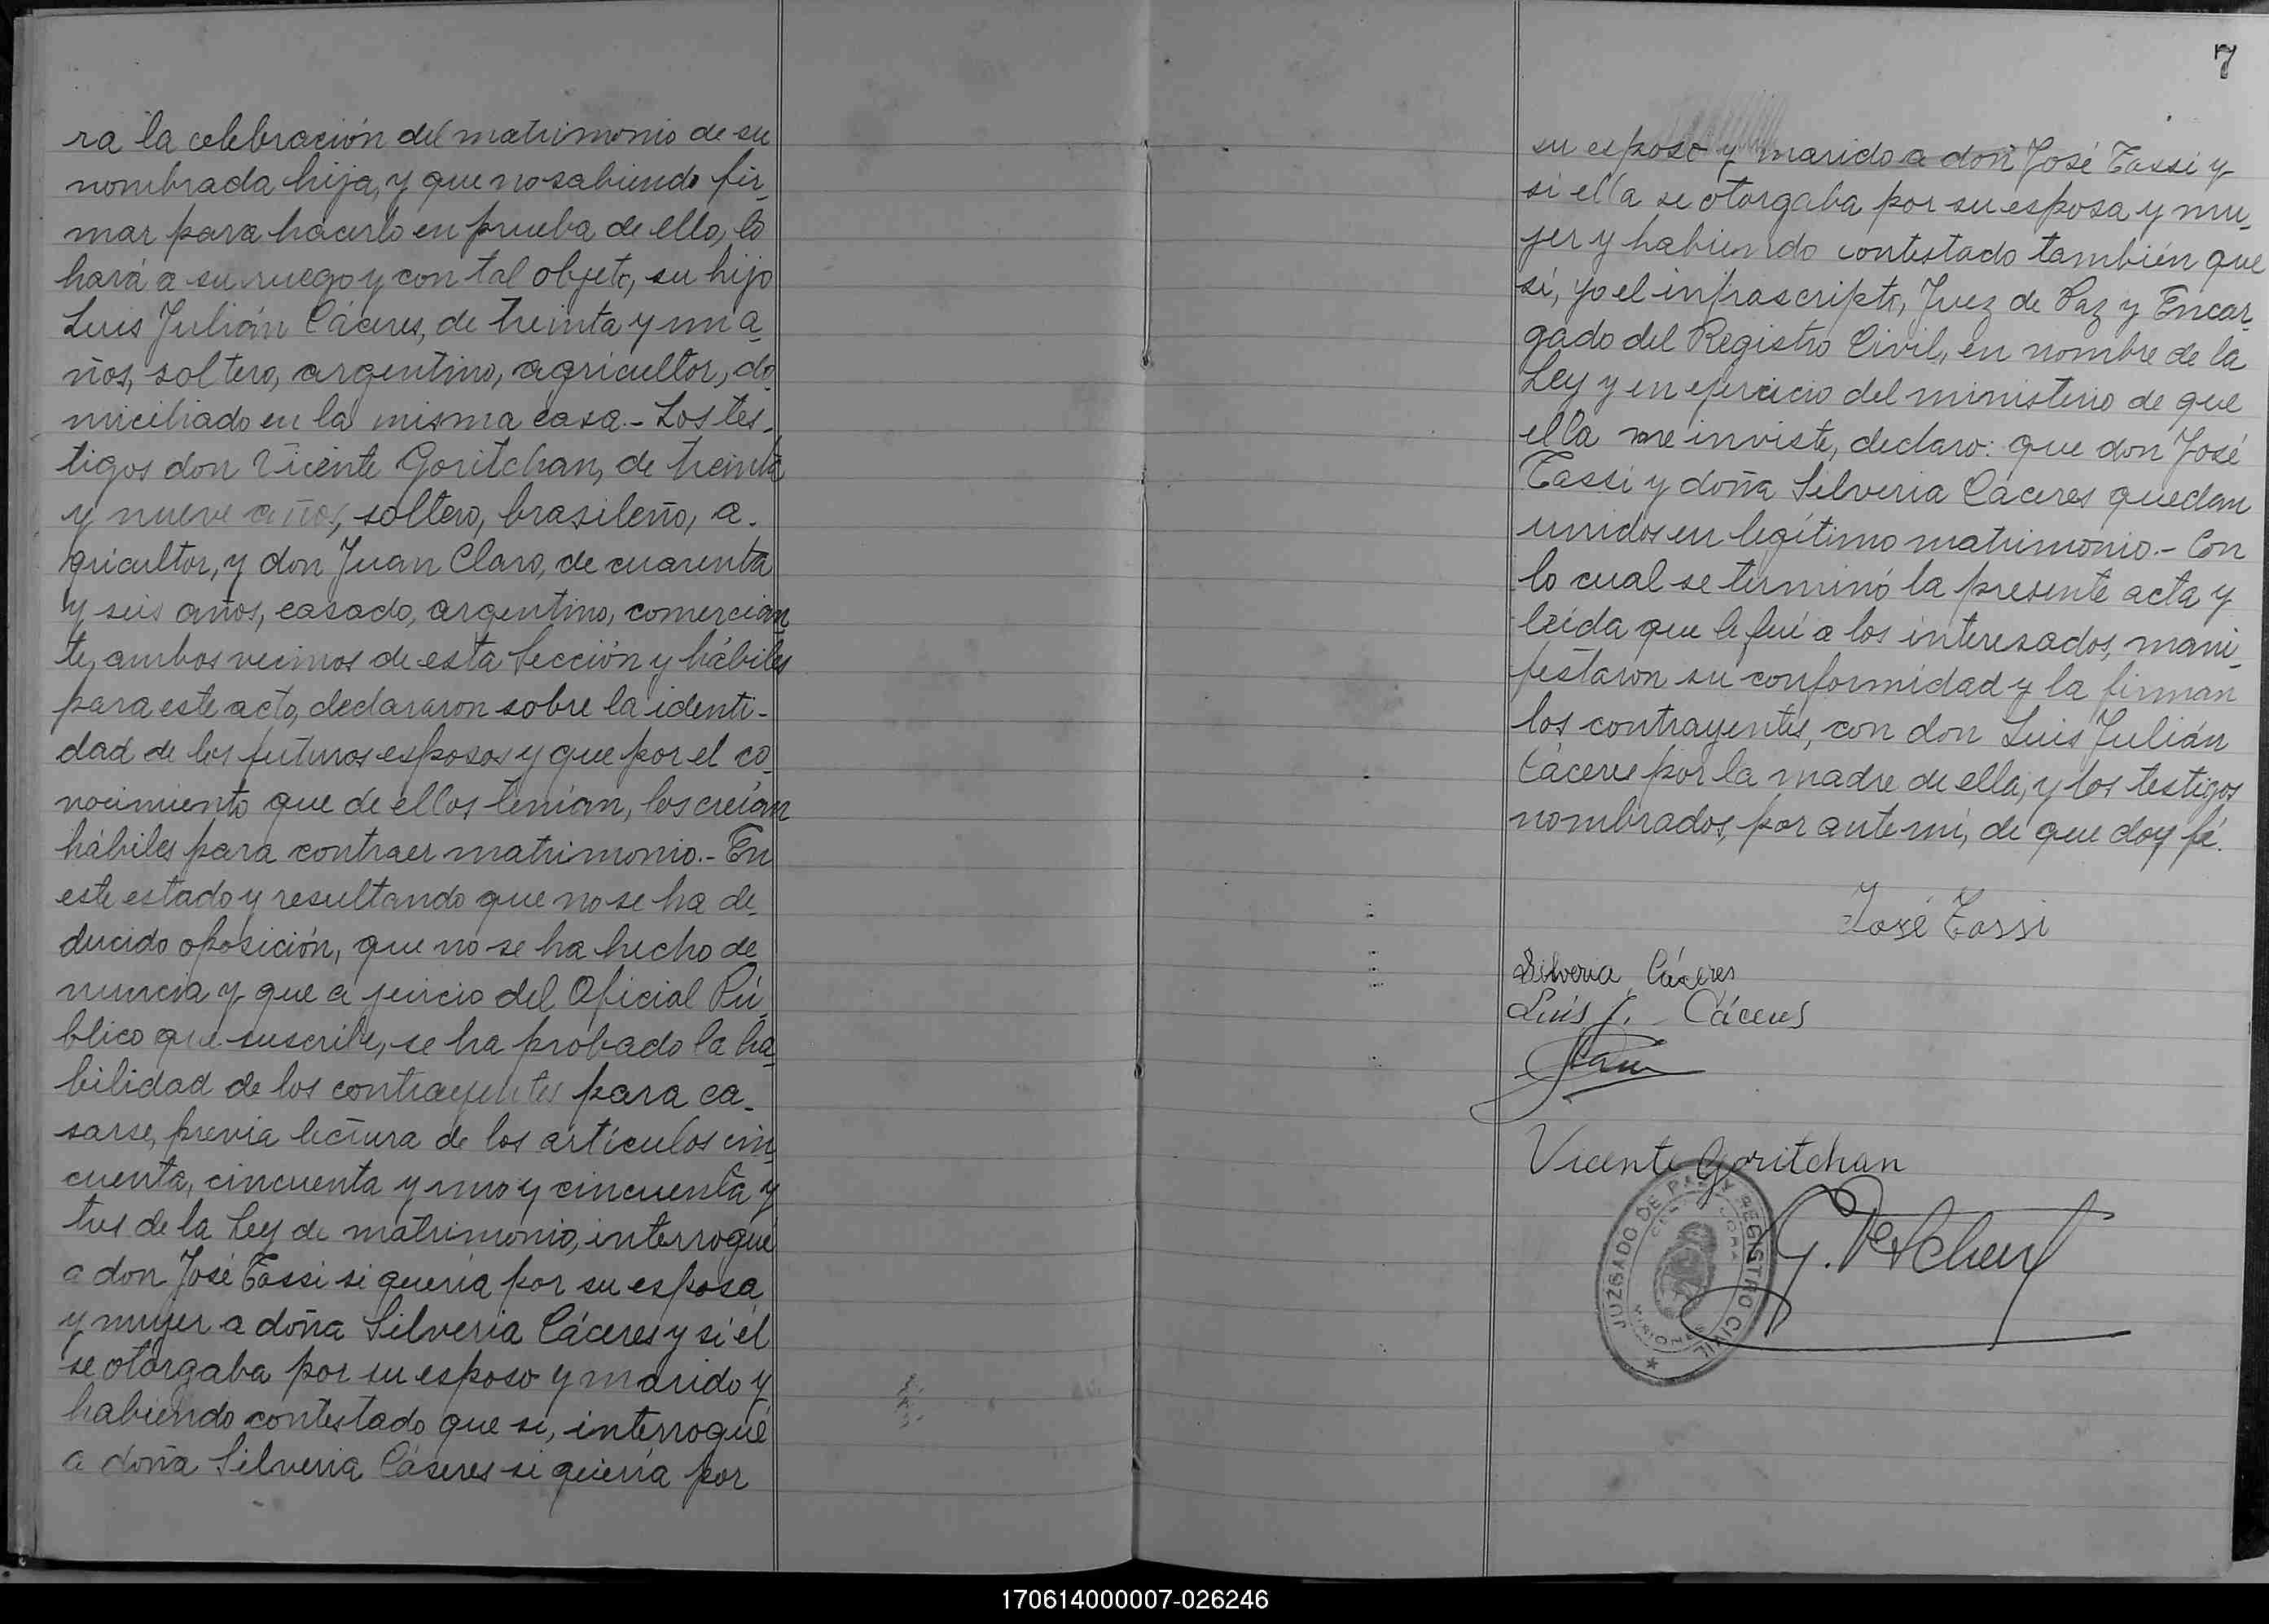 ra la celebración del matrimonio de su
nombrada hija, y que no sabiendo fir_
mar para hacerlo en prueba de ello, lo
hará a su ruego y con tal objeto, su hijo
Luis Julián Cáceres, de treinta y un a_
ños, soltero, argentino, agricultor, do_
miciliado en la misma casa.- Los tes_
tigos don Vicente Goritchan, de treinta
y nueve años, soltero, brasileño, a_
gricultor, y don Juan Claro, de cuarenta
y seis años, casado, argentino, comercian_
te, ambos vecinos de esta Sección y hábiles
para este acto, declararon sobre la identi-
dad de los futuros esposos y que por el co_
nocimiento que de ellos tenían, los creían
hábiles para contraer matrimonio.- En
este estado y resultando que no se ha de_
ducido oposición, que no se ha hecho de_
nuncia y que a juicio del Oficial Pú_
blico que suscribe, se ha probado la ha_
bilidad de los contrayentes para ca_
sarse, previa lectura de los artículos cin_
cuenta, cincuenta y uno y cincuenta y
tres de la Ley de matrimonio, interrogué
a don José Tassi si quería por su esposa
y mujer a doña Silveria Cáceres y si él
se otorgaba por su esposo y marido y
habiendo contestado que si, interrogué
a doña Silveria Cáceres si quería por
7
su esposo y marido a don José Tassi y
si ella se otorgaba por su esposa y mu_
jer y habiendo contestado también que
si, yo el infrascripto, Juez de Paz y Encar_
gado del Registro Civil, en nombre de la
Ley y en ejercicio del ministerio de que
ella me inviste, declaro: que don José
Tassi y doña Silveria Cáceres quedan
unidos en legítimo matrimonio.- Con
lo cual se terminó la presente acta y
leída que le fuí a los interesados, mani_
festaron su conformidad y la firman
los contrayentes, con don Luis Julián
Cáceres por la madre de ella, y los testigos
nombrados, por ante mí, de que doy fé.
José Tassi
Silveria Cáceres
Luís J. Cáceres
Vicente Goritchan
JUZGADO DE PAZ Y REGISTRO CIVIL
MISIONES
170614000007-026246